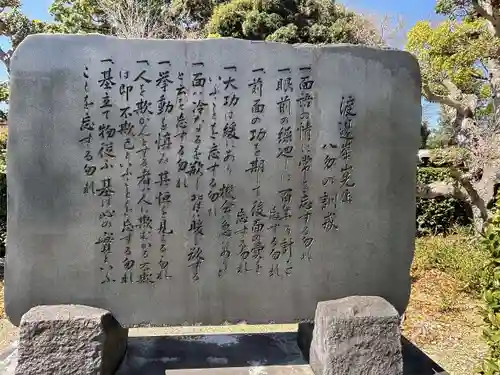 渡邊崋山先生
八勿の訓戒
一面語の情に常を忘する勿れ
一眼前の繰廻しに百年の計を
忘する勿れ
一前面の功を期して後面の費を
忘する勿れ
一大功は緩にあり機会は急にあり
といふことを忘する勿れ
一面は冷なるを欲し背は暖を欲する
と云を忘する勿れ
一挙動を慎み其恒を見らるゝ勿れ
一人を欺かんとする者人に欺むかる不欺は
即不欺己といふことを忘する勿れ
一基立て物従ふ基は心の實といふ
ことを忘する勿れ